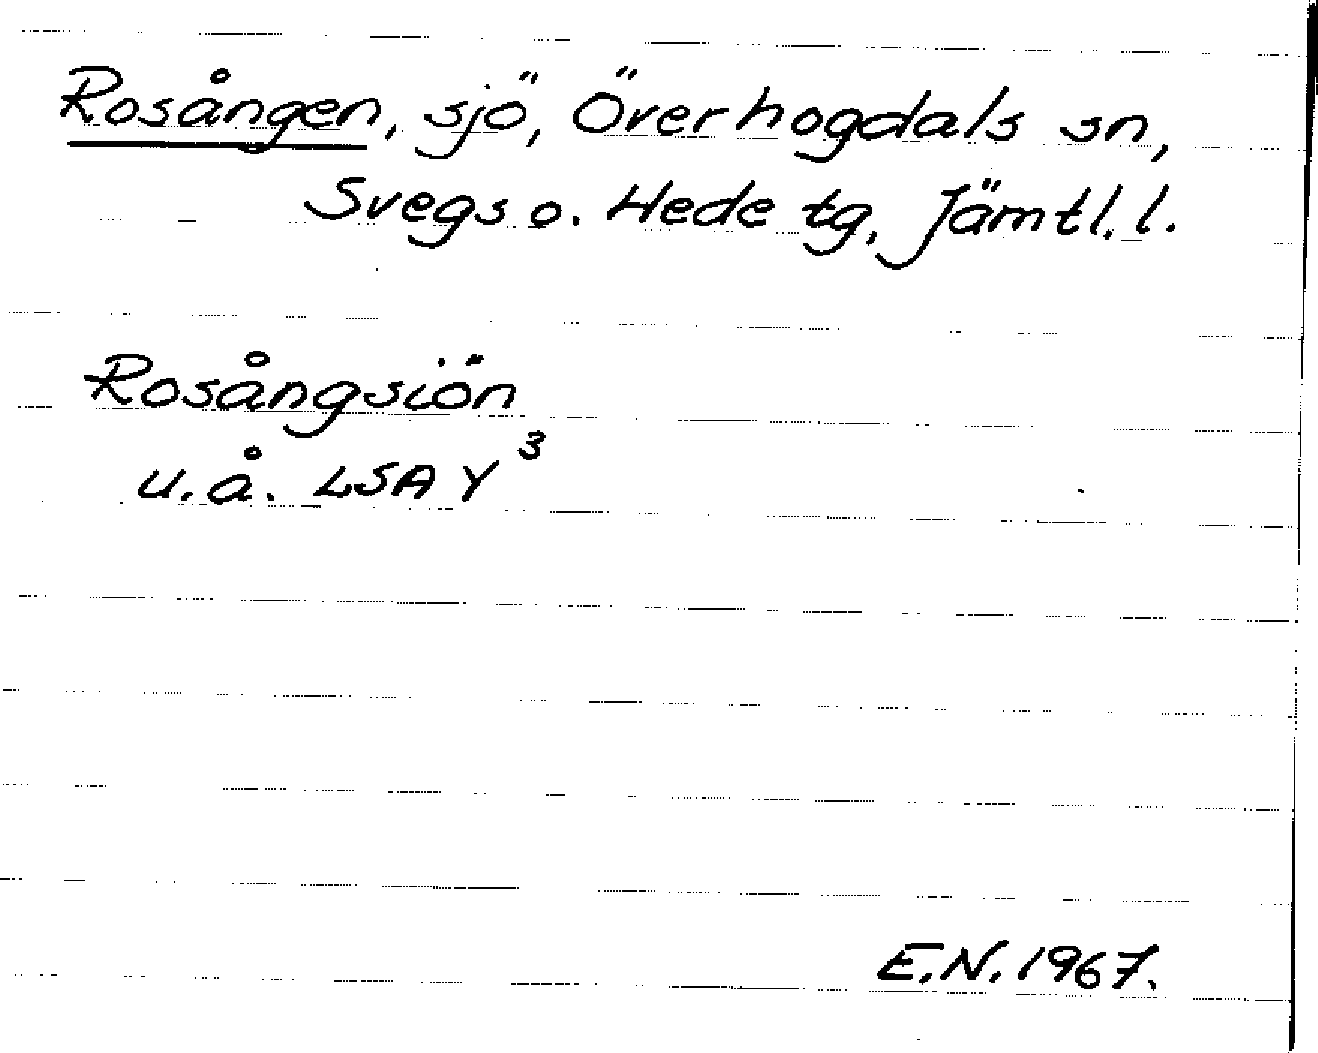 Rosången, sjö, Överhogdals sn,
Svegs o. Hede tg, Jämtl. l.
Rosångsiön
u.å. LSA Y³
E.N. 1967.